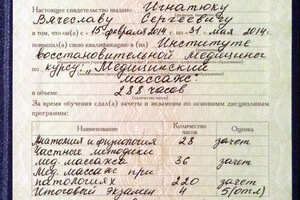 Настоящее свидетельство выдано Игнатюку
Вячеславу Сергеевичу
в том, что он(а) с «15» февраля 2014 г. по «31» мая 2014 г.
повышал(а) свою квалификацию в (на) Институте
восстановительной медицины
по курсу: „Медицинский
массаж"
в объеме 288 часов
За время обучения сдал(а) зачеты и экзамены по основным дисциплинам
программы:
Наименование Количество часов Оценка
Анатомия и физиология 28 зачет
Частные методики
мед. массажа 36 зачет
Мед. массаж при
патологиях 220 зачет
Итоговый экзамен 4 5 (отл)